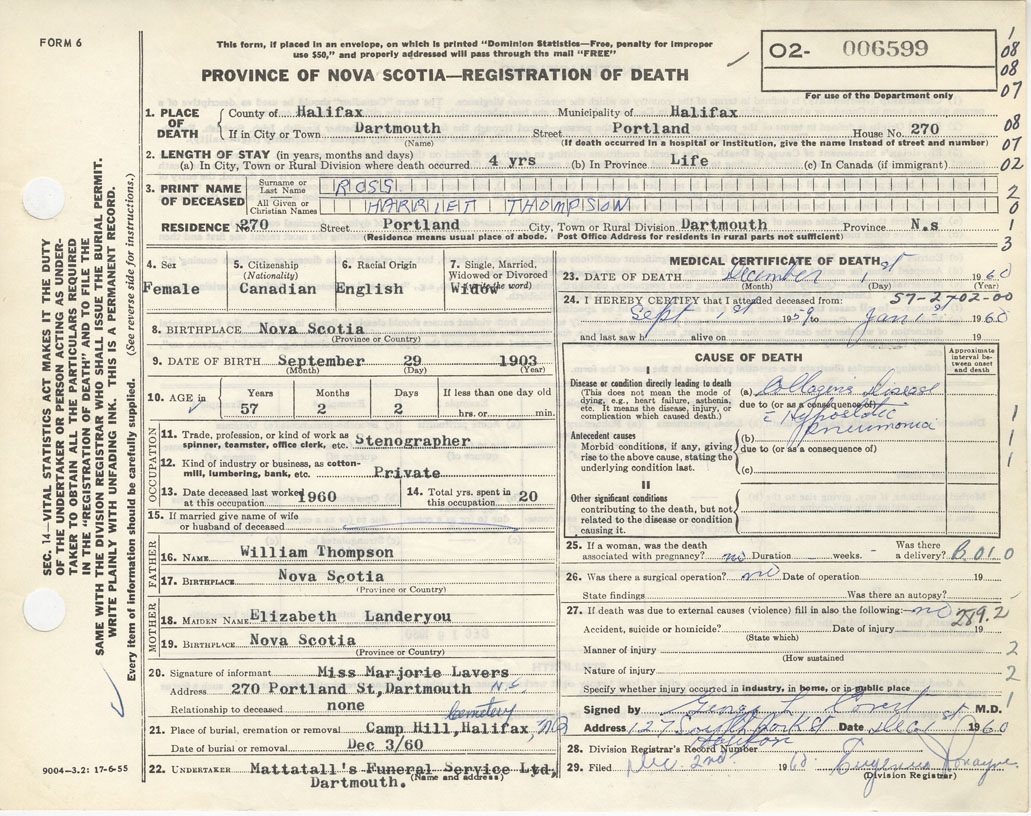 FORM 6
This form, if placed in an envelope, on which is printed "Dominion Statistics—Free, penalty for improper
use $50," and properly addressed will pass through the mail "FREE"
PROVINCE OF NOVA SCOTIA—REGISTRATION OF DEATH
O2- 006599
For use of the Department only
1
08
08
07
08
07
02
2
0
1
3
1. PLACE OF DEATH
County of Halifax Municipality of Halifax
If in City or Town Dartmouth Street Portland House No. 270
(Name) (If death occurred in a hospital or institution, give the name instead of street and number)
2. LENGTH OF STAY (in years, months and days)
(a) In City, Town or Rural Division where death occurred 4 yrs (b) In Province Life (c) In Canada (if immigrant)
3. PRINT NAME OF DECEASED
Surname or Last Name ROSS
All Given or Christian Names HARRIET THOMPSON
RESIDENCE N 270 Street Portland City, Town or Rural Division Dartmouth Province N.s
(Residence means usual place of abode. Post Office Address for residents in rural parts not sufficient)
SEC. 14—VITAL STATISTICS ACT MAKES IT THE DUTY
OF THE UNDERTAKER OR PERSON ACTING AS UNDER-
TAKER TO OBTAIN ALL THE PARTICULARS REQUIRED
IN THE "REGISTRATION OF DEATH" AND TO FILE THE
SAME WITH THE DIVISION REGISTRAR WHO SHALL ISSUE THE BURIAL PERMIT.
WRITE PLAINLY WITH UNFADING INK. THIS IS A PERMANENT RECORD.
Every item of information should be carefully supplied. (See reverse side for instructions.)
4. Sex
Female
5. Citizenship
(Nationality)
Canadian
6. Racial Origin
English
7. Single, Married,
Widowed or Divorced
(write the word)
Widow
8. BIRTHPLACE Nova Scotia
(Province or Country)
9. DATE OF BIRTH September 29 1903
(Month) (Day) (Year)
10. AGE in Years Months Days If less than one day old
57 2 2 hrs. or min.
OCCUPATION
11. Trade, profession, or kind of work as
spinner, teamster, office clerk, etc. Stenographer
12. Kind of industry or business, as cotton-
mill, lumbering, bank, etc. Private
13. Date deceased last worked
at this occupation 1960
14. Total yrs. spent in
this occupation 20
15. If married give name of wife
or husband of deceased
FATHER
16. NAME William Thompson
17. BIRTHPLACE Nova Scotia
(Province or Country)
MOTHER
18. MAIDEN NAME Elizabeth Landeryou
19. BIRTHPLACE Nova Scotia
(Province or Country)
20. Signature of informant Miss Marjorie Lavers
Address 270 Portland St, Dartmouth N.S.
Relationship to deceased none
Cemetery
21. Place of burial, cremation or removal Camp Hill, Halifax,
Date of burial or removal Dec 3/60
22. UNDERTAKER Mattatall's Funeral Service Ltd,
(Name and address)
Dartmouth.
9004—3.2: 17-6-55
MEDICAL CERTIFICATE OF DEATH
23. DATE OF DEATH December 1st 1960
(Month) (Day) (Year)
24. I HEREBY CERTIFY that I attended deceased from: 57-2702-00
Sept 1st 1959 to Jan 1st 1960
and last saw h alive on 19
CAUSE OF DEATH
Approximate
interval be-
tween onset
and death
I
Disease or condition directly leading to death
(This does not mean the mode of
dying, e.g., heart failure, asthenia,
etc. It means the disease, injury, or
complication which caused death.)
(a) Collagenic Disease
due to (or as a consequence of)
c Hypostatic
pneumonia
1
1
1
Antecedent causes
Morbid conditions, if any, giving
rise to the above cause, stating the
underlying condition last.
(b)
due to (or as a consequence of)
(c)
II
Other significant conditions
contributing to the death, but not
related to the disease or condition
causing it.
25. If a woman, was the death
associated with pregnancy? no Duration weeks. - Was there
a delivery? B.010
26. Was there a surgical operation? no Date of operation 19
State findings Was there an autopsy?
27. If death was due to external causes (violence) fill in also the following: no 289.2
Accident, suicide or homicide? Date of injury 19
(State which)
Manner of injury 2
(How sustained
Nature of injury 2
Specify whether injury occurred in industry, in home, or in public place 1
Signed by George L Covert M.D.
Address 127 South Park St Date Dec 1st 1960
Halifax
28. Division Registrar's Record Number
29. Filed Dec. 2nd. 1960.
(Division Registrar)